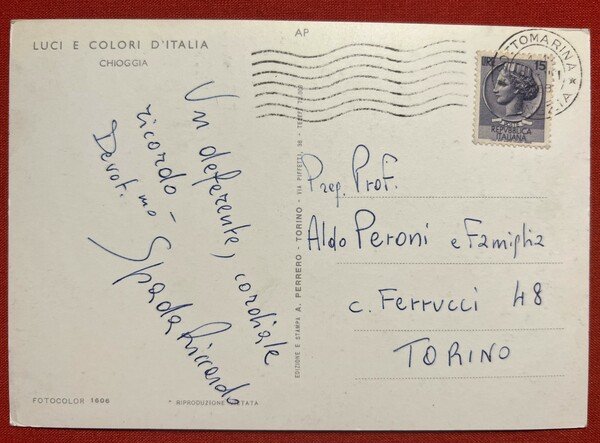 LUCI E COLORI D'ITALIA
CHIOGGIA
AP
Un deferente, cordiale
ricordo -
Devot.mo
Spada Riccardo
FOTOCOLOR 1606
* RIPRODUZIONE VIETATA
EDIZIONE E STAMPA A. PERRERO - TORINO - VIA PIFFETTI, 38 - TELEF.
TTOMARINA *
15
REPVBBLICA
ITALIANA
Preg. Prof.
Aldo Peroni e Famiglia
c. Ferrucci 48
TORINO